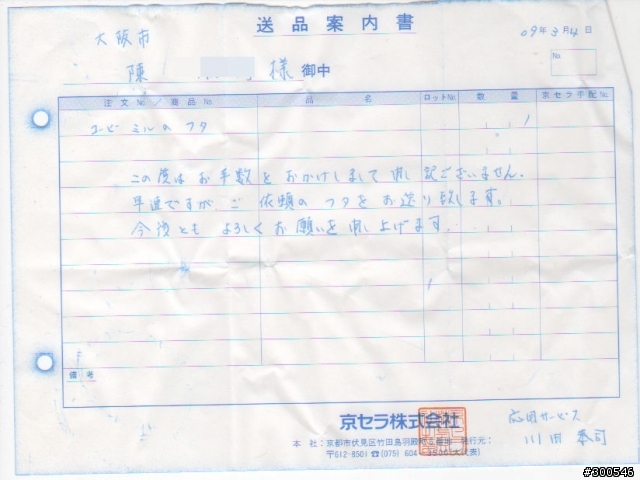 送品案内書
大阪市
09年3月4日
No.
陳 様 御中
注文No.／商品No. 品名 ロットNo. 数量 京セラ手配No.
コーヒーミルのフタ 1
この度はお手数をおかけしまして申し訳ございません。
早速ですがご依頼のフタをお送り致します。
今後ともよろしくお願いを申し上げます。
備考
京セラ株式会社 応用サービス
本社:京都市伏見区竹田鳥羽殿町 発行元: 川田
〒612-8501 ☎(075) 604 (大代表)
#300546